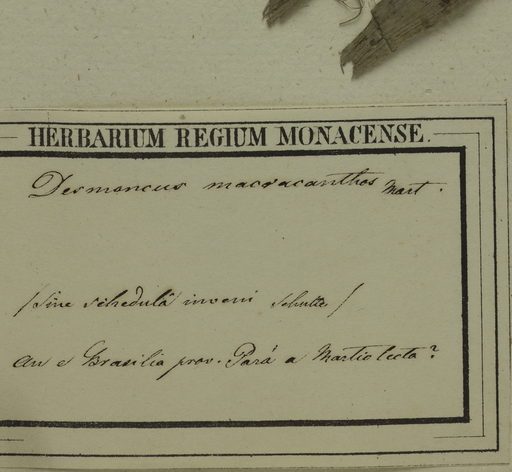 HERBARIUM REGIUM MONACENSE.
Desmoncus macracanthos Mart.
/Sine schedulâ inveni Schultes/
An e Brasilia prov. Pará a Martio lecta?